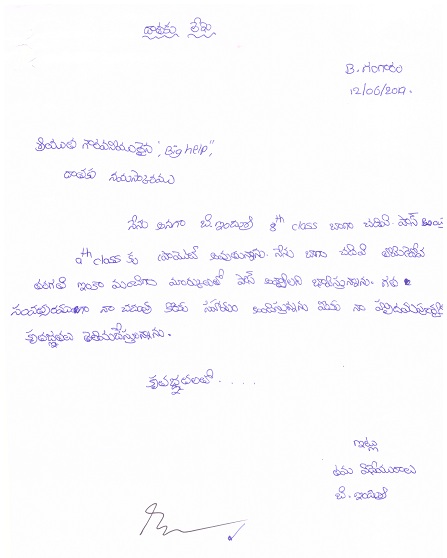 దాతకు లేఖ
B. గంగారం
12/06/2009.
శ్రీయుత గౌరవనీయులైన "Big help",
దాతకు నమస్కారము
నేను అనగా బి. ఇందుశ్రీ 8th class బాగా చదివి పాస్
9th class కు ప్రమోట్ అవుతున్నాను. నేను బాగా చదివి
తరగతి ఇంకా మంచిగా మార్కులతో పాస్ అవ్వాలని భావిస్తున్నాను. గత
సంవత్సరముగా నా చదువు కొరకు సహాయం అందిస్తున్నారు మీకు నా హృదయపూర్వక
కృతజ్ఞతలు తెలియచేస్తున్నాను.
కృతజ్ఞతలతో. . . .
ఇట్లు
తమ విధేయురాలు
బి. ఇందుశ్రీ